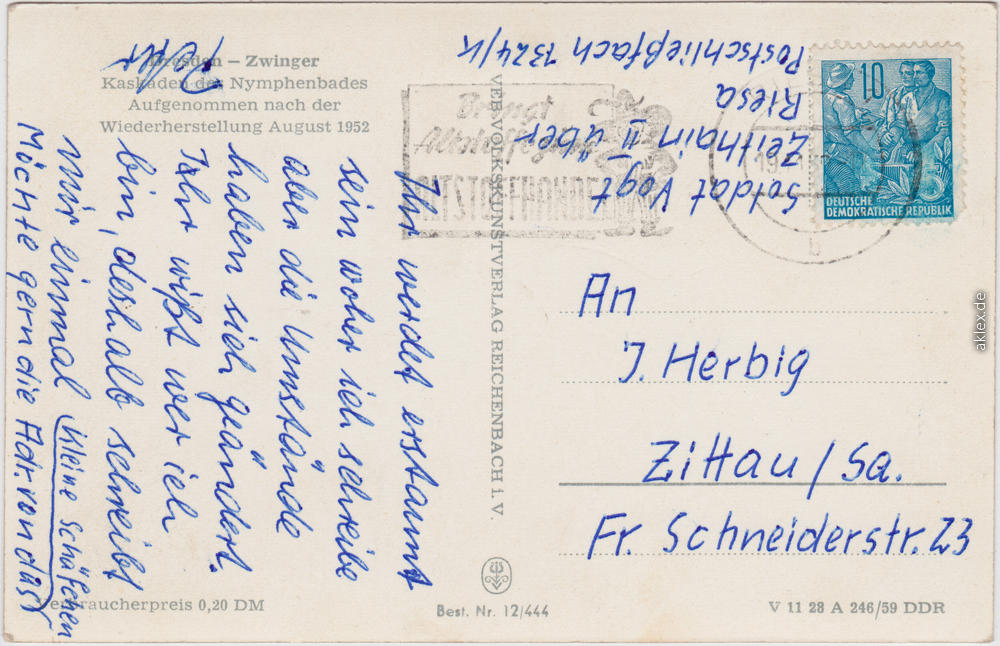 Dresden – Zwinger
Kaskaden des Nymphenbades
Aufgenommen nach der
Wiederherstellung August 1952
Ihr werdet erstaunt
sein woher ich schreibe
aber die Umstände
haben sich geändert.
Ihr wißt wer ich
bin, deshalb schreibt
mir einmal
Möchte gern die Adr. von das
kleine Schäfchen
Verbraucherpreis 0,20 DM
VEB VOLKSKUNSTVERLAG REICHENBACH i. V.
Best. Nr. 12/444
Bringt
Altstoffe
ALTSTOFFHANDEL
Soldat Vogt
Zeithain II über
Riesa
Postschließfach 7324/K
10
DEUTSCHE
DEMOKRATISCHE REPUBLIK
b
An
J. Herbig
Zittau/Sa.
Fr. Schneiderstr. 23
V 11 28 A 246/59 DDR
aklex.de